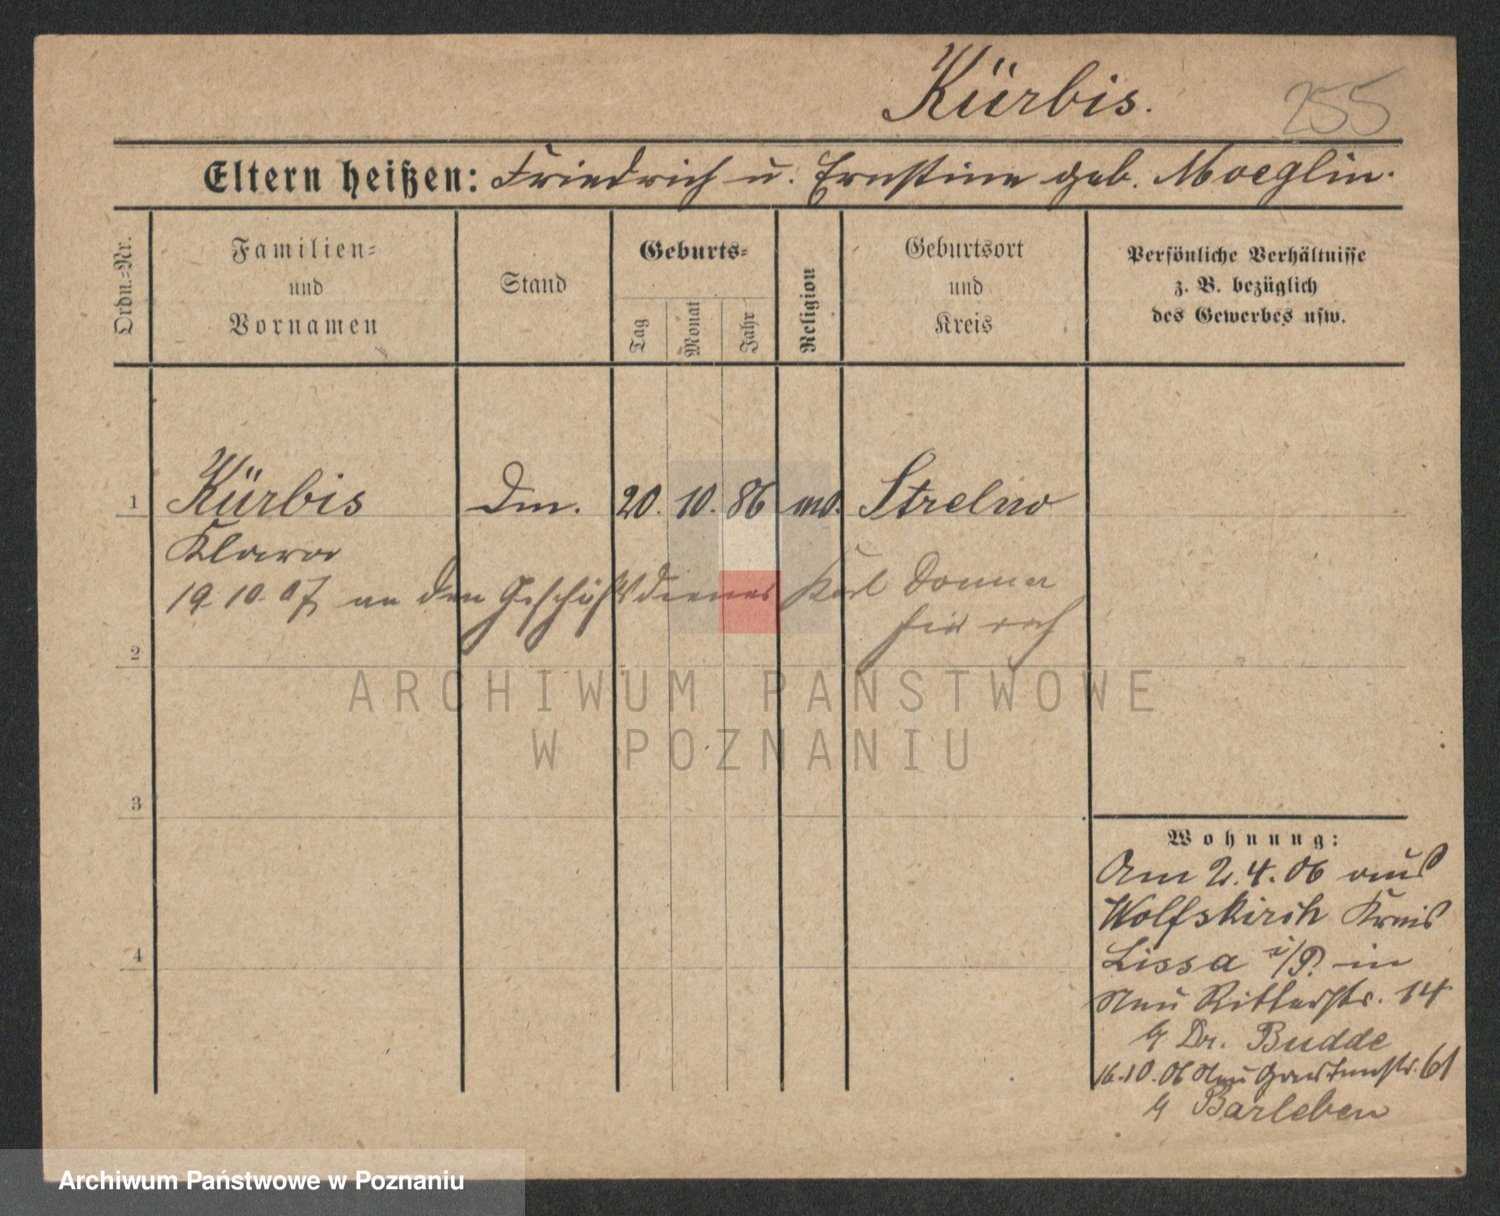 Kürbis.
255
Eltern heißen: Friedrich u. Ernstine geb. Moeglin.
Ordn.-Nr.
Familien- und Vornamen
Stand
Geburts-
Tag
Monat
Jahr
Religion
Geburtsort und Kreis
Persönliche Verhältnisse
z. B. bezüglich
des Gewerbes usw.
1 Kürbis Dm. 20. 10. 86 Strelno
Klara
19.10.07 an den Geschäftsdiener Karl Donner
2
3
4
Wohnung:
Am 2.4.06 aus
Wolfskirch Kreis
Lissa i/P. in
Neu Ritterstr. 14
Dr. Budde
16.10.06 Neu Gartenstr. 61
Barleben
ARCHIWUM PAŃSTWOWE
W POZNANIU
Archiwum Państwowe w Poznaniu